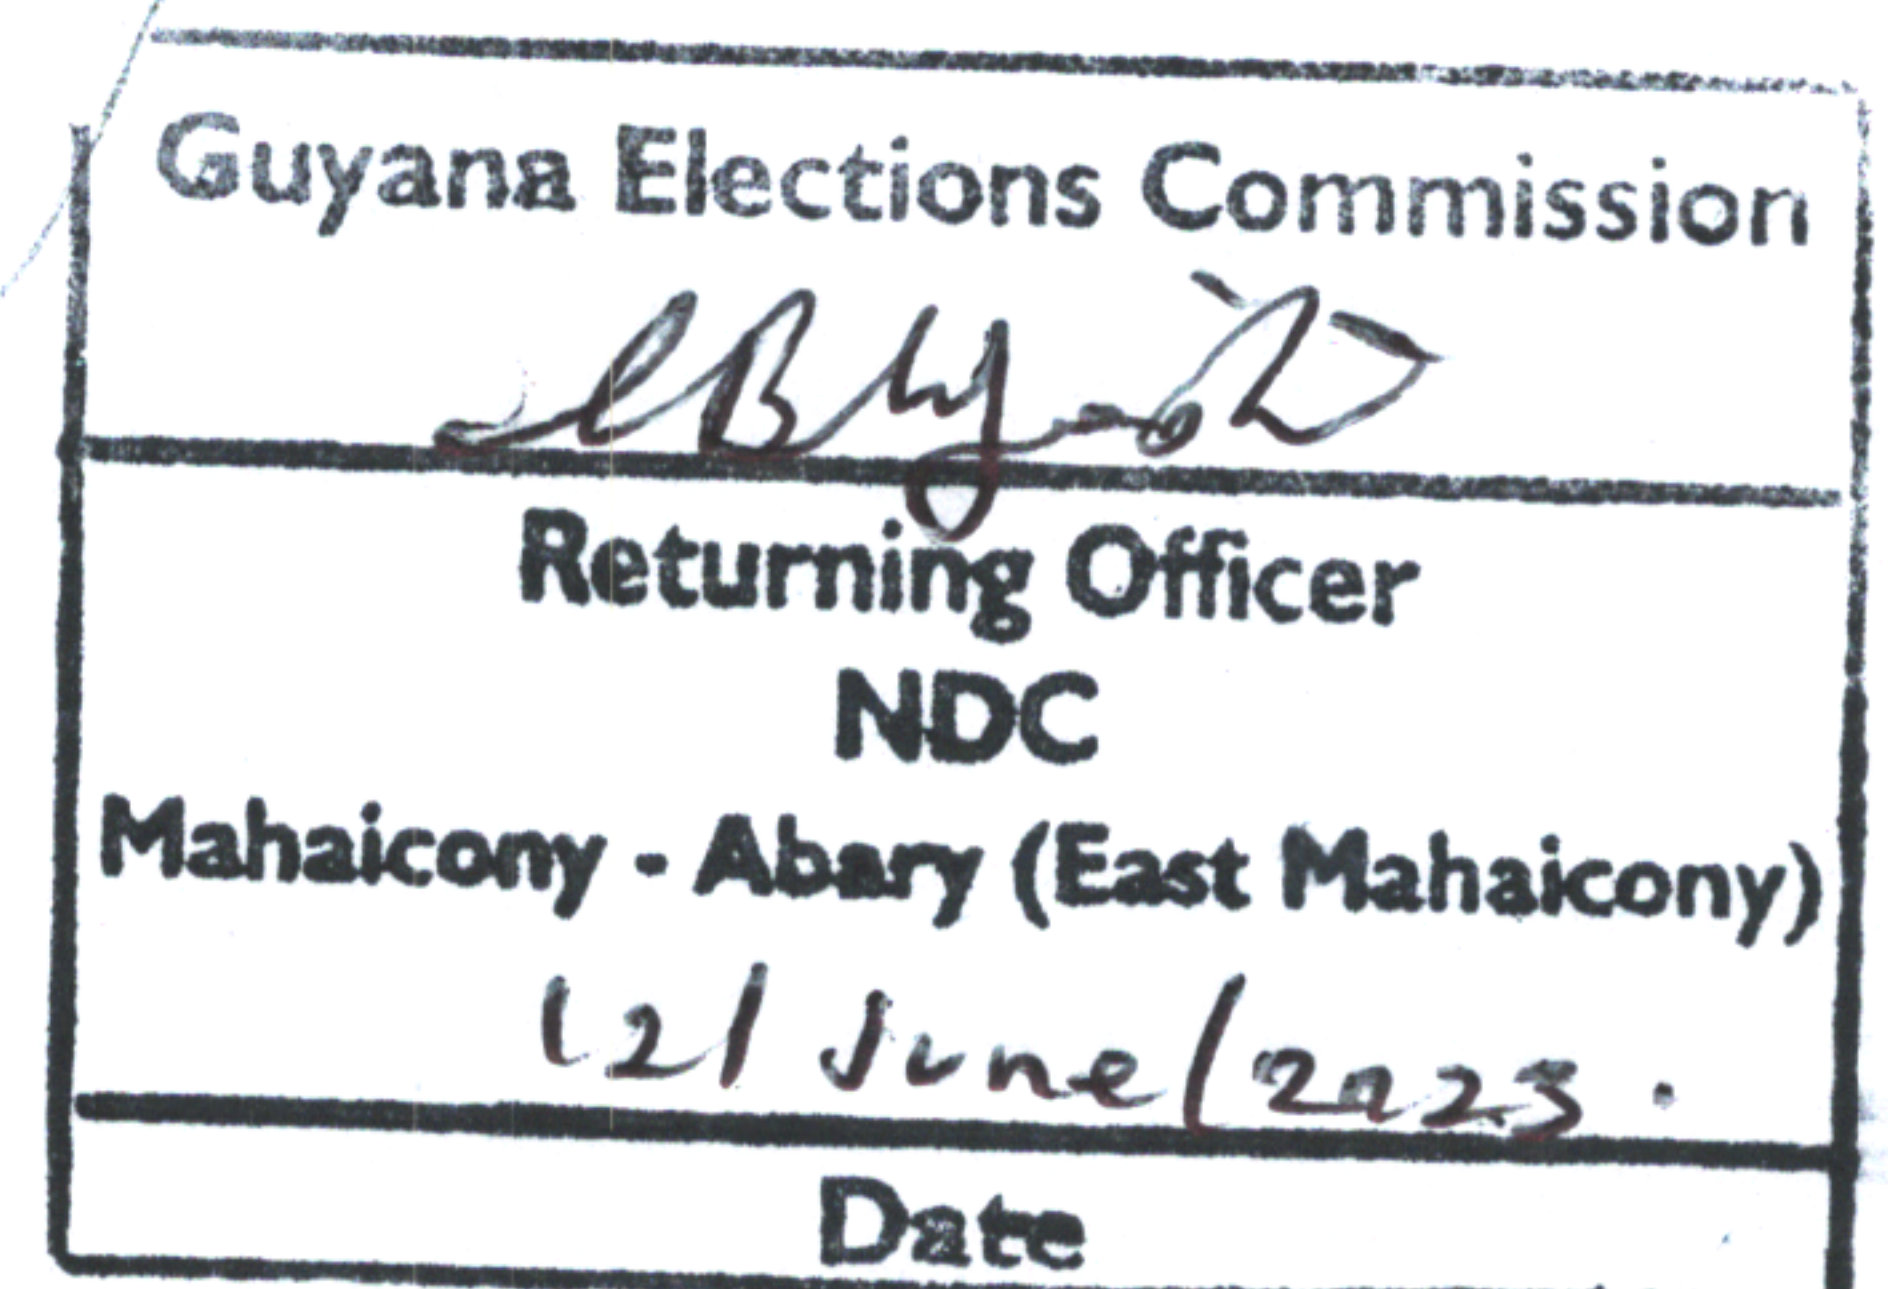 Guyana Elections Commission
Returning Officer
NDC
Mahaicony - Abary (East Mahaicony)
12/June/2023.
Date